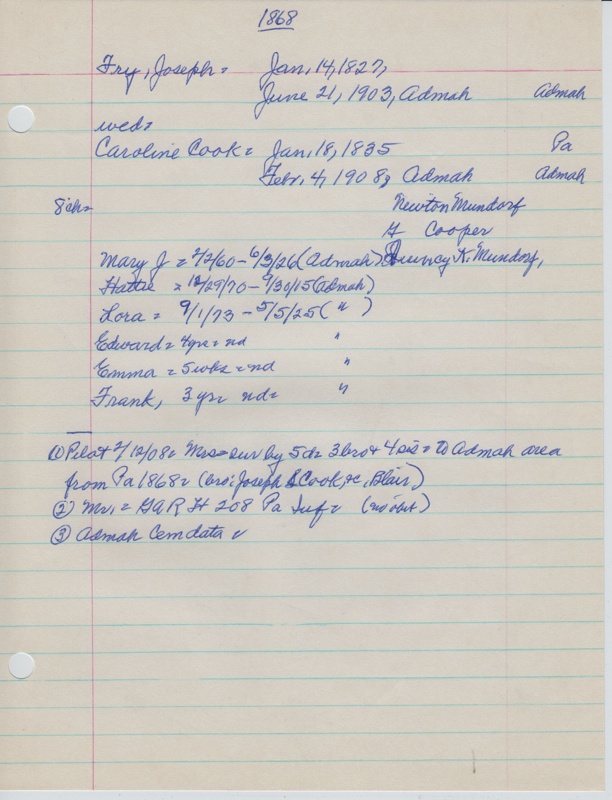 1868
Fry, Joseph = Jan, 14, 1827,
June 21, 1903, Admah Admah
wed=
Caroline Cook = Jan, 18, 1835 Pa
Febr, 4, 1908, Admah Admah
8 ch= Newton Mundorf
H Cooper
Mary J = 2/2/60 - 6/3/26 (Admah) Quincy K. Mundorf,
Hattie = 12/29/70 - 9/30/15 (Admah)
Lora = 9/1/73 - 5/5/25 ( " )
Edward = 4 yrs = nd "
Emma = 5 wks = nd "
Frank, 3 yr= nd= "
① Pilot 2/12/08 = Mrs = sur by 5 d= 3 bro + 4 sis = to Admah area
from Pa 1868 = (bro: Joseph S Cook, Blair)
② Mr, = GAR H 208 Pa Inf = (no obit)
③ Admah Cem data =